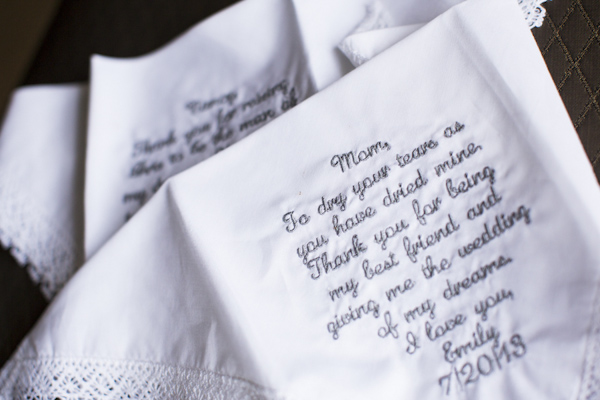 Thank you for raising
the man of
my
Mom,
To dry your tears as
you have dried mine.
Thank you for being
my best friend and
giving me the wedding
of my dreams.
I love you,
Emily
7|20|13